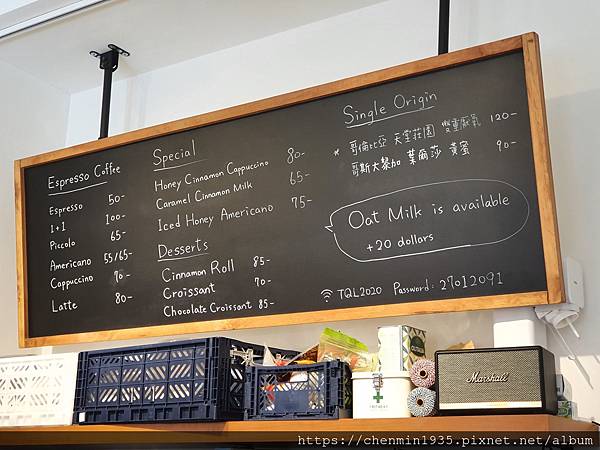 Espresso Coffee
Espresso 50-
1+1 100-
Piccolo 65-
Americano 55/65-
Cappuccino 70-
Latte 80-
Special
Honey Cinnamon Cappuccino 80-
Caramel Cinnamon Milk 65-
Iced Honey Americano 75-
Desserts
Cinnamon Roll 85-
Croissant 70-
Chocolate Croissant 85-
Single Origin
* 哥倫比亞 天堂莊園 雙重厭氧 120-
哥斯大黎加 葉爾莎 黃蜜 90-
Oat Milk is available
+20 dollars
TQL2020 Password: 27012091
Marshall
https://chenmin1935.pixnet.net/album